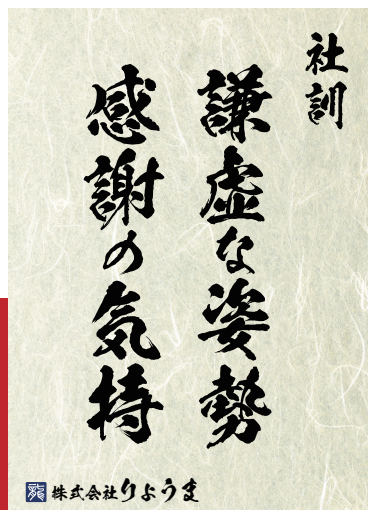 社訓
謙虚な姿勢
感謝の気持
龍 株式会社りょうま